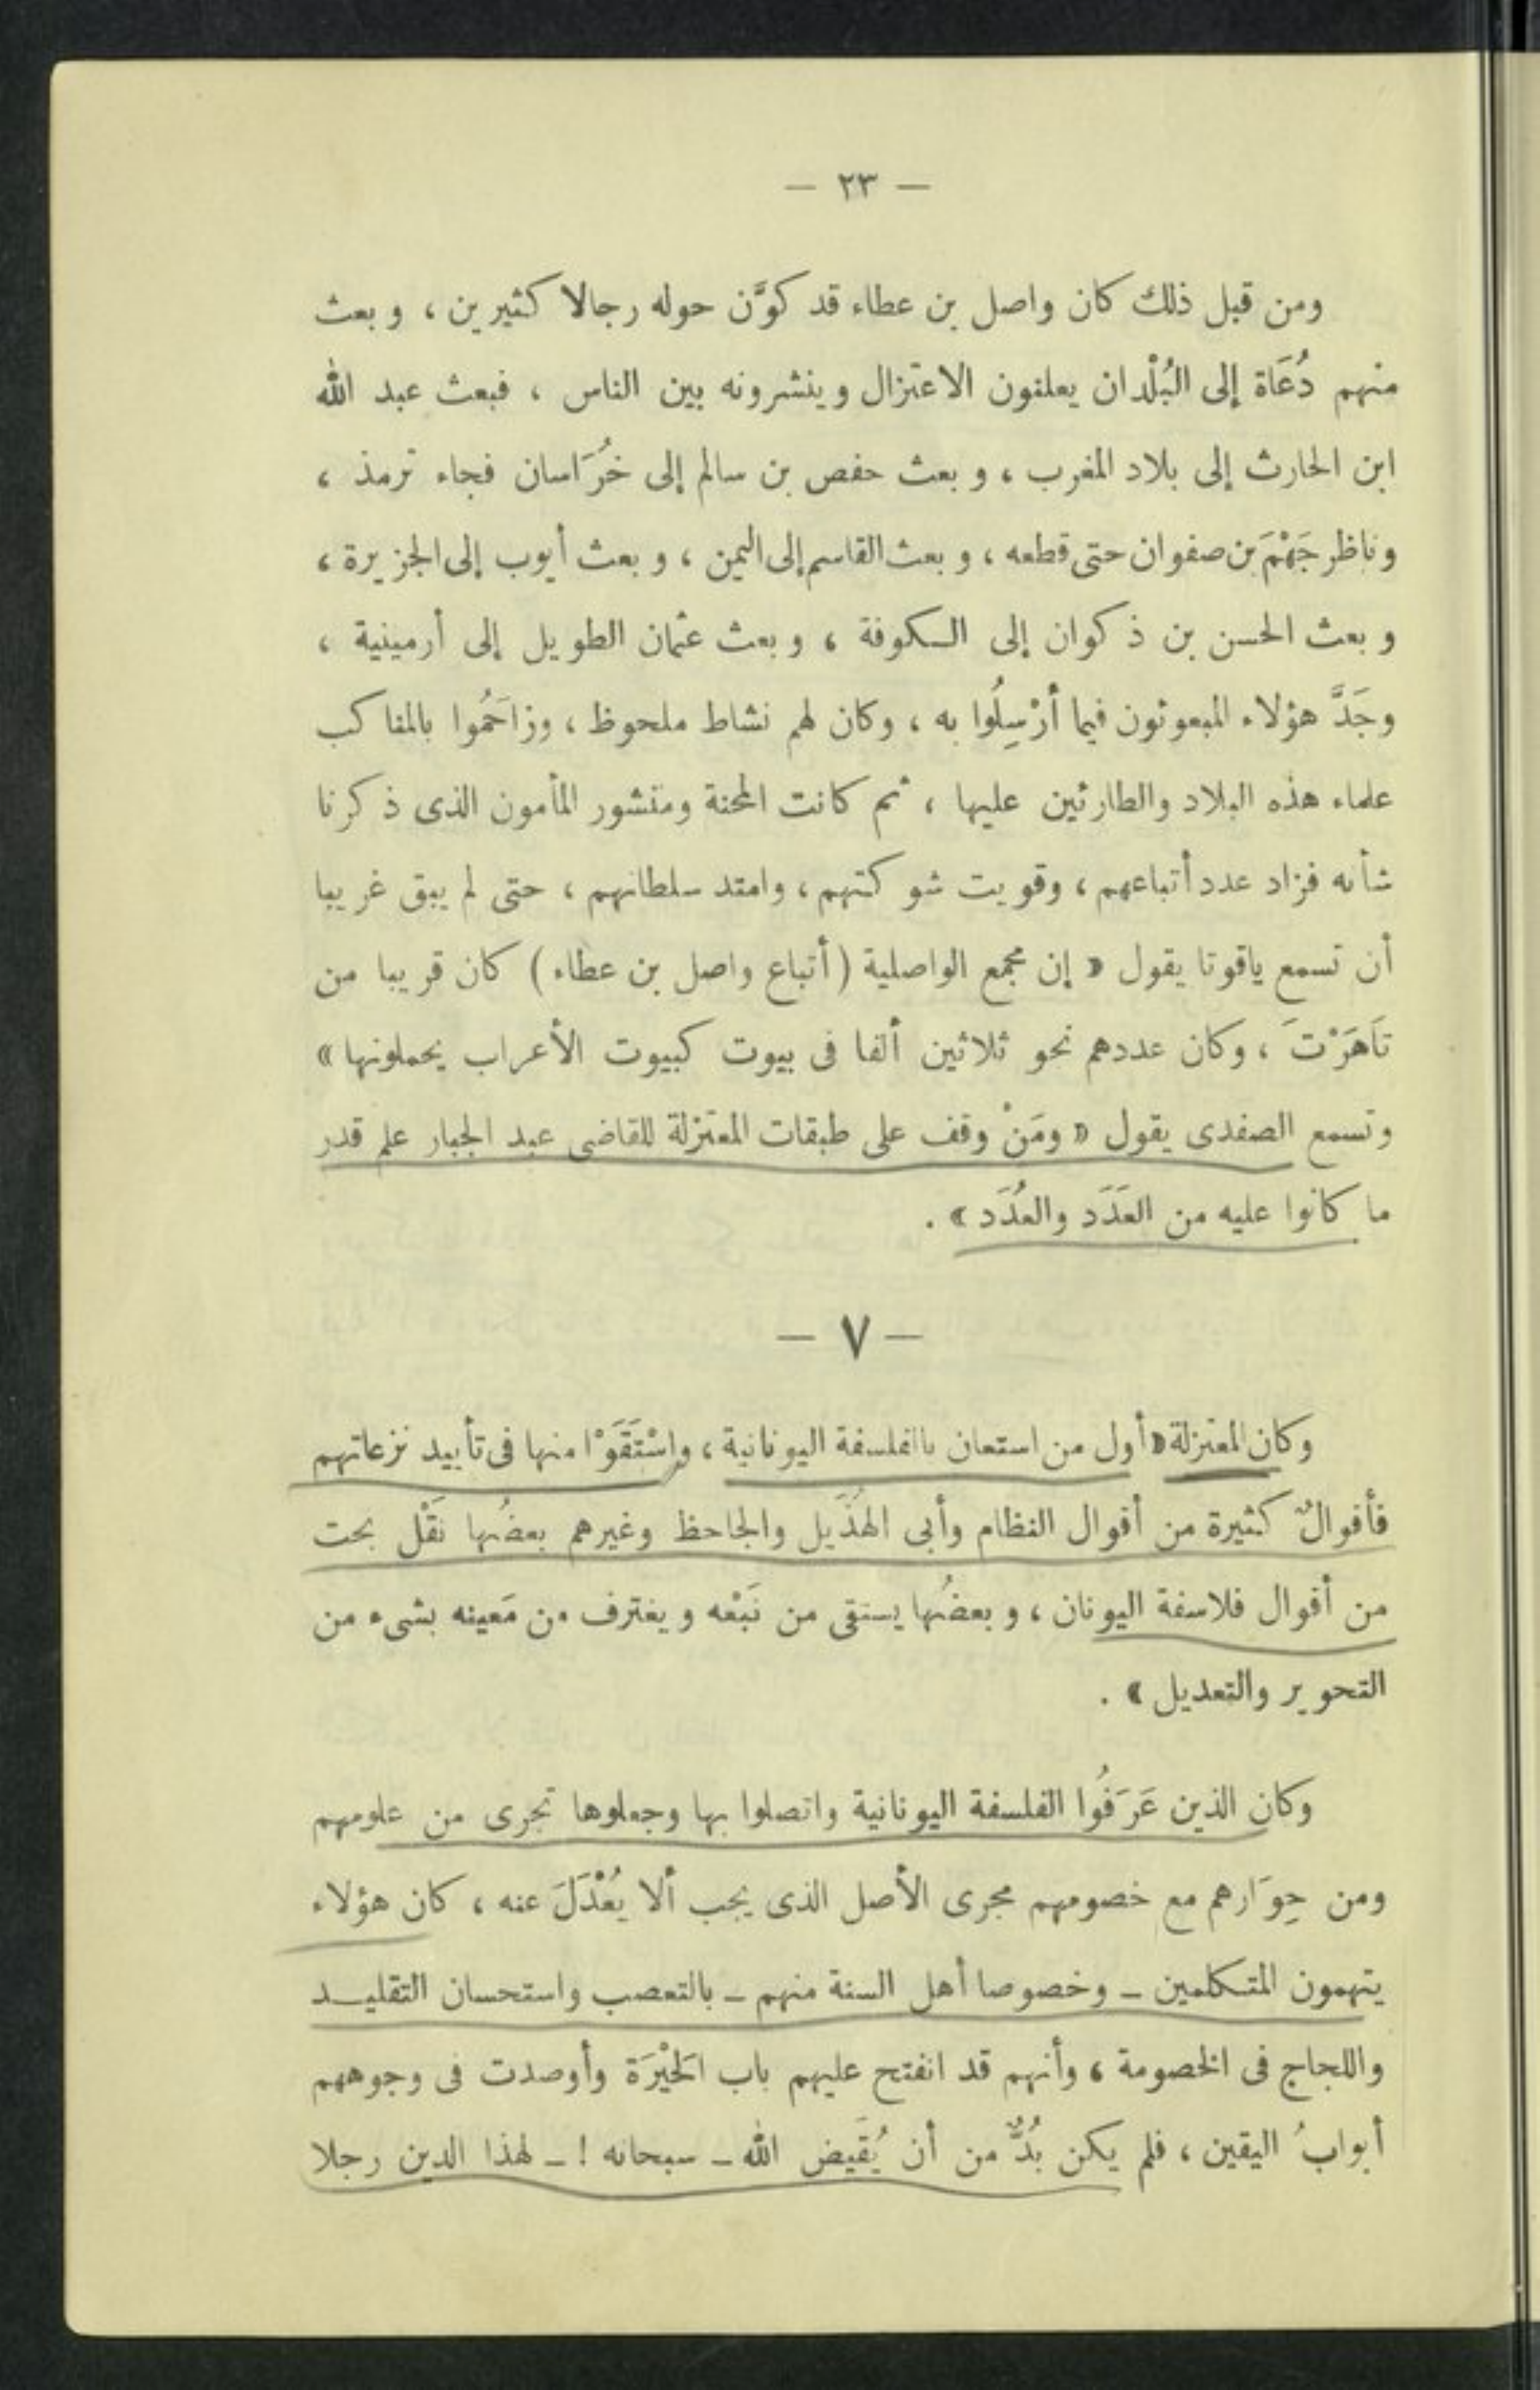 — ٢٣ —
ومن قبل ذلك كان واصل بن عطاء قد كوَّن حوله رجالا كثيرين ، وبعث
منهم دُعَاة إلى البُلْدان يعلنون الاعتزال وينشرونه بين الناس ، فبعث عبد الله
ابن الحارث إلى بلاد المغرب ، وبعث حفص بن سالم إلى خُرَاسان فجاء ترمذ ،
وناظر جَهْمَ بن صفوان حتى قطعه ، وبعث القاسم إلى اليمن ، وبعث أيوب إلى الجزيرة ،
وبعث الحسن بن ذكوان إلى الكوفة ، وبعث عثمان الطويل إلى أرمينية ،
وجَدَّ هؤلاء المبعوثون فيما أُرْسِلُوا به ، وكان لهم نشاط ملحوظ ، وزاحَمُوا بالمناكب
علماء هذه البلاد والطارئين عليها ، ثم كانت المحنة ومنشور المأمون الذى ذكرنا
شأنه فزاد عدد أتباعهم ، وقويت شوكتهم ، وامتد سلطانهم ، حتى لم يبق غريبا
أن تسمع ياقوتا يقول « إن مجمع الواصلية (أتباع واصل بن عطاء) كان قريبا من
تَاهَرْتَ ، وكان عددهم نحو ثلاثين ألفا فى بيوت كبيوت الأعراب يحملونها »
وتسمع الصفدى يقول « ومَنْ وقف على طبقات المعتزلة للقاضى عبد الجبار علم قدر
ما كانوا عليه من العَدَد والعُدَد » .
— ٧ —
وكان المعتزلة « أول من استعان بالفلسفة اليونانية ، واسْتَقَوْا منها فى تأييد نزعاتهم
فأقوالٌ كثيرة من أقوال النظام وأبى الهُذَيل والجاحظ وغيرهم بعضُها نَقْل بحت
من أقوال فلاسفة اليونان ، وبعضُها يستقى من نَبْعه ويغترف من مَعينه بشىء من
التحوير والتعديل » .
وكان الذين عَرَفُوا الفلسفة اليونانية واتصلوا بها وجعلوها تجرى من علومهم
ومن حِوَارهم مع خصومهم مجرى الأصل الذى يجب ألا يُعْدَلَ عنه ، كان هؤلاء
يتهمون المتكلمين ــ وخصوصا أهل السنة منهم ــ بالتعصب واستحسان التقليد
واللجاج فى الخصومة ، وأنهم قد انفتح عليهم باب الحَيْرَة وأوصدت فى وجوههم
أبوابُ اليقين ، فلم يكن بُدٌّ من أن يُقَيض الله ــ سبحانه ! ــ لهذا الدين رجلا